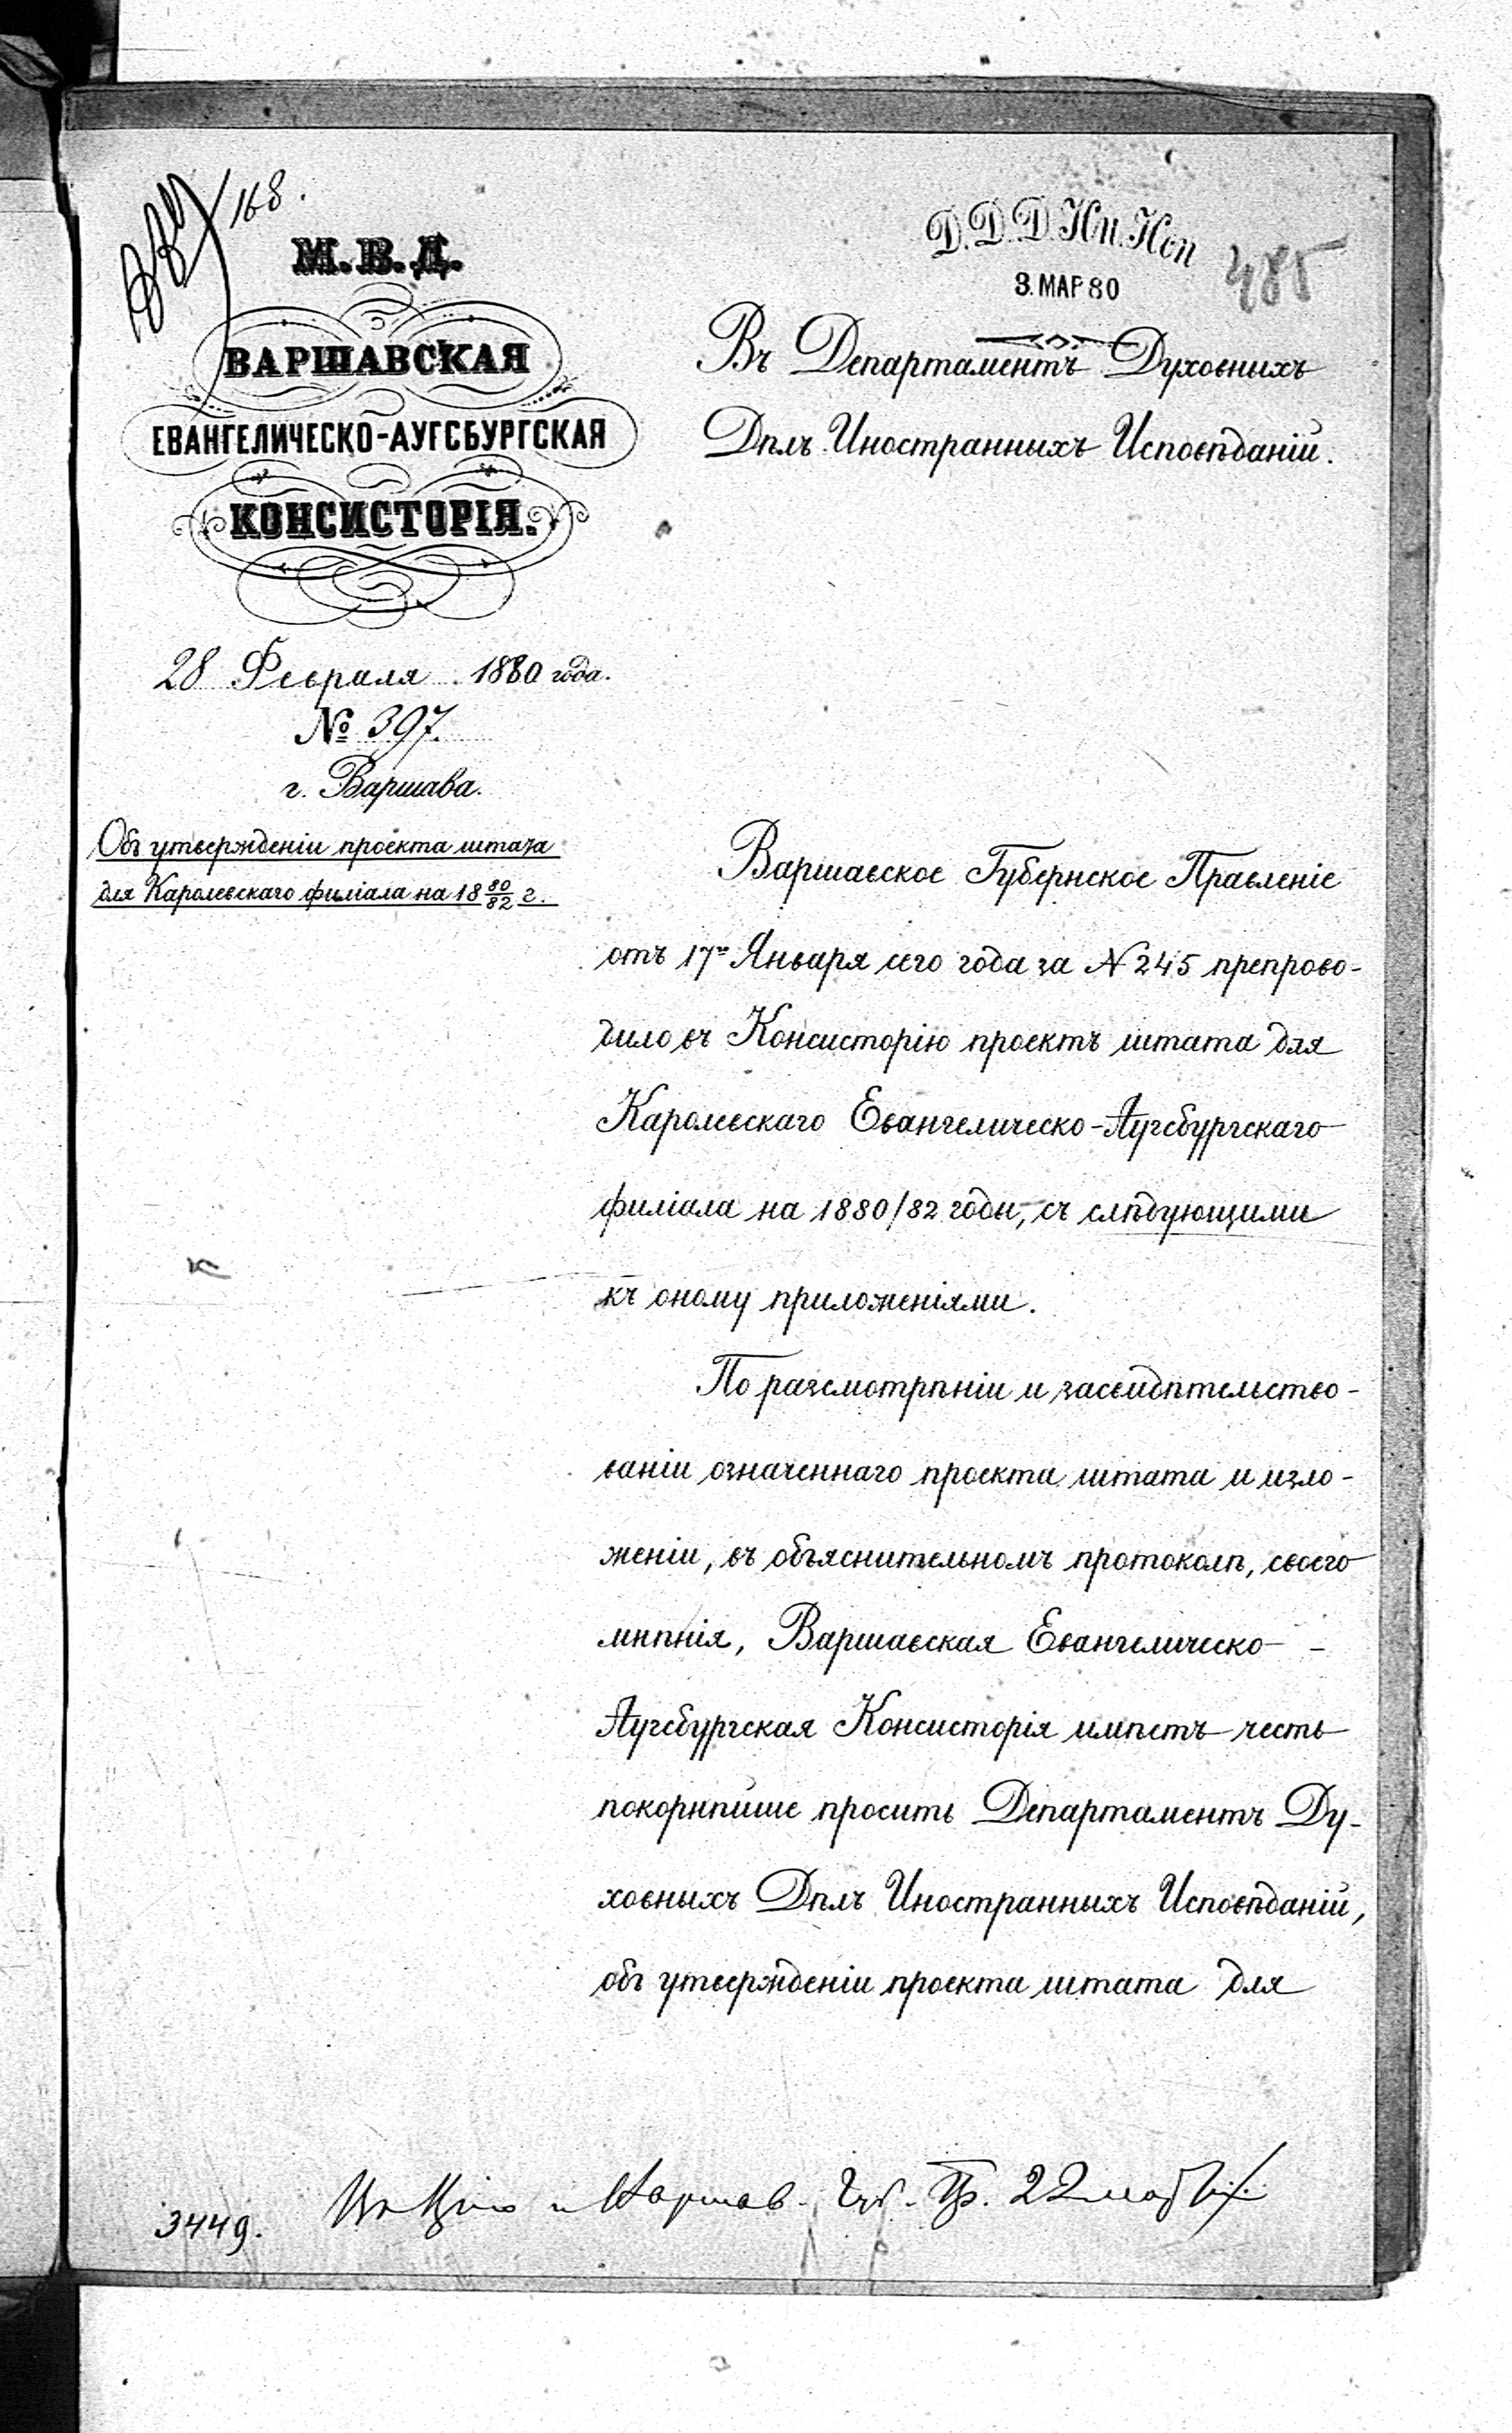 168.
М. В. Д.
ВАРШАВСКАЯ
ЕВАНГЕЛИЧЕСКО-АУГСБУРГСКАЯ
КОНСИСТОРІЯ.
28 Февраля 1880 года.
№ 397.
г. Варшава.
Объ утвержденіи проекта штата
для Каролевскаго филіала на 18 80/82 г.
Д. Д. Д. Ин. Исп
3. МАР 80
485
Въ Департаментъ Духовныхъ
Дѣлъ Иностранныхъ Исповѣданій.
Варшавское Губернское Правленіе
отъ 17го Января сего года за N 245 препрово-
дило въ Консисторію проектъ штата для
Каролевскаго Евангелическо-Аугсбургскаго
филіала на 1880/82 годы, съ слѣдующими
къ оному приложеніями.
По разсмотрѣніи и засвидѣтельство-
ваніи означеннаго проекта штата и изло-
женіи, въ объяснительномъ протоколѣ, своего
мнѣнія, Варшавская Евангелическо-
Аугсбургская Консисторія имѣетъ честь
покорнѣйше просить Департаментъ Ду-
ховныхъ Дѣлъ Иностранныхъ Исповѣданій,
объ утвержденіи проекта штата для
Варшав. Губ. Пр. 22
3449.